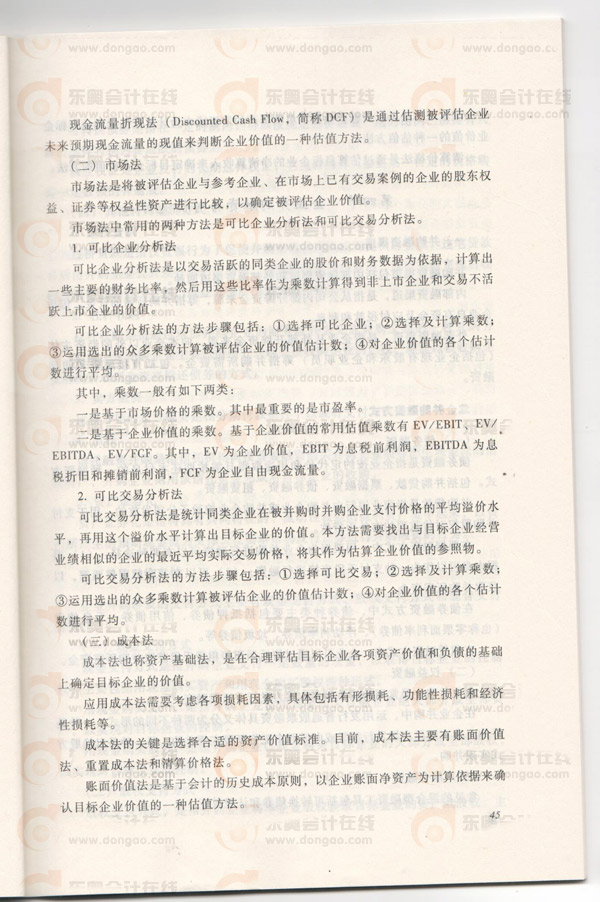 现金流量折现法（Discounted Cash Flow，简称 DCF）是通过估测被评估企业
未来预期现金流量的现值来判断企业价值的一种估值方法。
（二）市场法
市场法是将被评估企业与参考企业、在市场上已有交易案例的企业的股东权
益、证券等权益性资产进行比较，以确定被评估企业价值。
市场法中常用的两种方法是可比企业分析法和可比交易分析法。
1. 可比企业分析法
可比企业分析法是以交易活跃的同类企业的股价和财务数据为依据，计算出
一些主要的财务比率，然后用这些比率作为乘数计算得到非上市企业和交易不活
跃上市企业的价值。
可比企业分析法的方法步骤包括：①选择可比企业；②选择及计算乘数；
③运用选出的众多乘数计算被评估企业的价值估计数；④对企业价值的各个估计
数进行平均。
其中，乘数一般有如下两类：
一是基于市场价格的乘数。其中最重要的是市盈率。
二是基于企业价值的乘数。基于企业价值的常用估值乘数有 EV/EBIT、EV/
EBITDA、EV/FCF。其中，EV 为企业价值，EBIT 为息税前利润，EBITDA 为息
税折旧和摊销前利润，FCF 为企业自由现金流量。
2. 可比交易分析法
可比交易分析法是统计同类企业在被并购时并购企业支付价格的平均溢价水
平，再用这个溢价水平计算出目标企业的价值。本方法需要找出与目标企业经营
业绩相似的企业的最近平均实际交易价格，将其作为估算企业价值的参照物。
可比交易分析法的方法步骤包括：①选择可比交易；②选择及计算乘数；
③运用选出的众多乘数计算被评估企业的价值估计数；④对企业价值的各个估计
数进行平均。
（三）成本法
成本法也称资产基础法，是在合理评估目标企业各项资产价值和负债的基础
上确定目标企业的价值。
应用成本法需要考虑各项损耗因素，具体包括有形损耗、功能性损耗和经济
性损耗等。
成本法的关键是选择合适的资产价值标准。目前，成本法主要有账面价值
法、重置成本法和清算价格法。
账面价值法是基于会计的历史成本原则，以企业账面净资产为计算依据来确
认目标企业价值的一种估值方法。
45
东奥会计在线
www.dongao.com